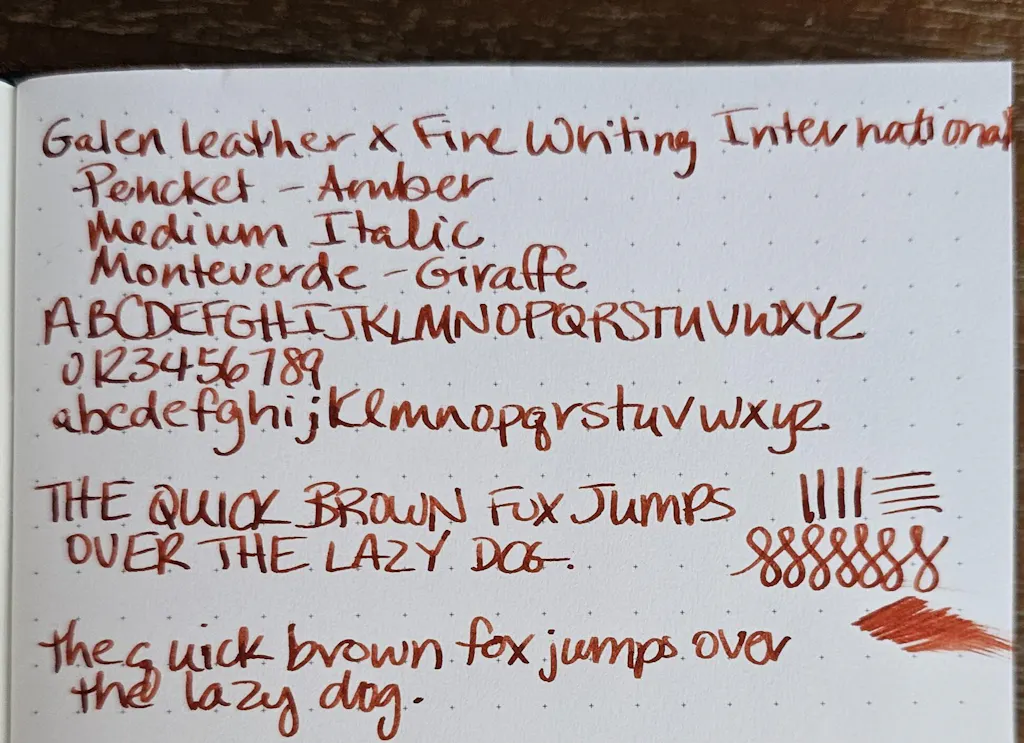 Galen Leather X Fine Writing International
Pencket - Amber
Medium Italic
Monteverde - Giraffe
ABCDEFGHIJKLMNOPQRSTUVWXYZ
0123456789
abcdefghijklmnopqrstuvwxyz
THE QUICK BROWN FOX JUMPS
OVER THE LAZY DOG.
the quick brown fox jumps over
the lazy dog.